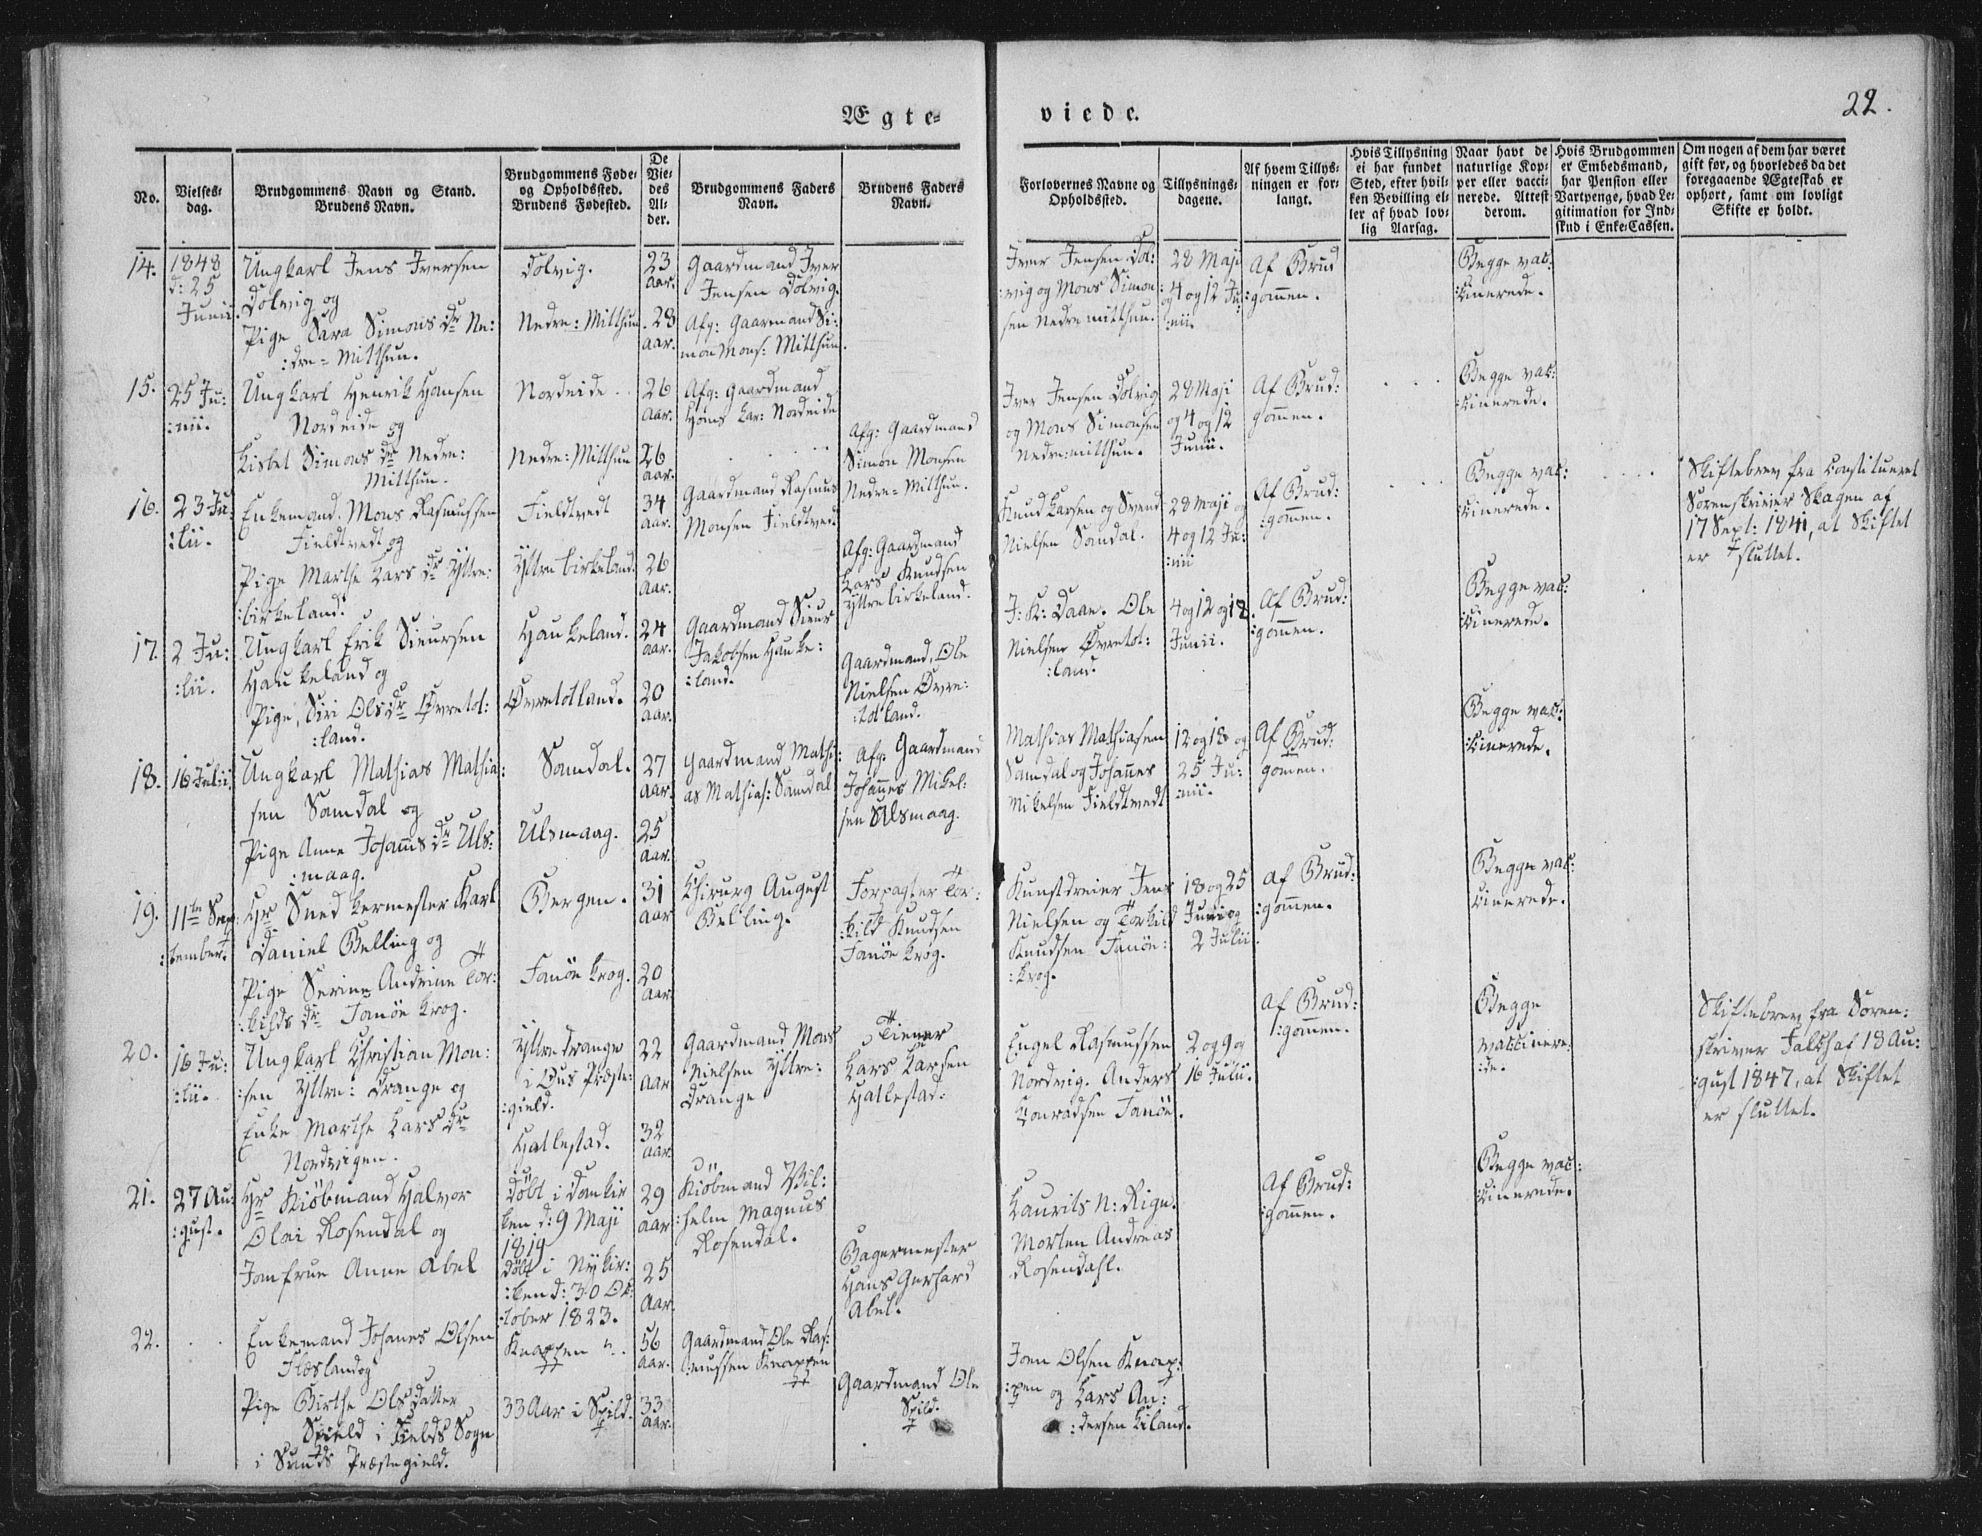 Ægte-
viede.
22.
No.
Vielses-
dag.
Brudgommens Navn og Stand.
Brudens Navn.
Brudgommens Føde-
og Opholdssted.
Brudens Fødested.
De
Vie-
des
Al-
der.
Brudgommens Faders
Navn.
Brudens Faders
Navn.
Forlovernes Navne og
Opholdssted.
Tillysnings-
dagene.
Af hvem Tillys-
ningen er for-
langt.
Hvis Tillysning
ei har fundet
Sted, efter hvil-
ken Bevilling el-
ler af hvad lov-
lig Aarsag.
Naar havt de
naturlige Kop-
per eller vacci-
nerede. Attest
derom.
Hvis Brudgommen
er Embedsmand,
har Pension eller
Vartpenge, hvad Le-
gitimation for Ind-
skud i Enke-Cassen.
Om nogen af dem har været
gift før, og hvorledes da det
foregaaende Ægteskab er
ophørt, samt om lovligt
Skifte er holdt.
14.
1848
d: 25
Junii.
Ungkarl Jens Iversen
Dolvig og
Pige Sara Simons dr Ne:
:dre= Mitthun.
Dolvig.
Nedre: Mitthun
23
Aar.
28
Aar.
Gaardmand Iver
Jensen Dolvig.
Afg: Gaarmand Si:
mon Mons: Mitthun.
Iver Jensen Dol:
:vig og Mons Simon
sen Nedre mitthun.
28 Maji
og 4 og 12 Ju:
:nii.
Af Brud
:gommen.
Begge vac:
:cinerede.
15.
25 Ju:
:nii.
Ungkarl Henrik Hansen
Nordeide og
Lisbet Simons dr Nedre:
Mitthun.
Nordeide
Nedre: Mitthun
26
Aar.
26
Aar.
Afg: Gaardmand
Hans Lar: Nordeide
Afg: Gaardmand
Simon Monsen
Nedre= Mitthun.
Iver Jensen Dolvig
og Mons Simonsen
Nedre:mitthun.
28 Maji
og 4 og 12
Junii.
Af Brud:
gommen.
Begge vac:
:cinerede.
16.
23 Ju:
:lii.
Enkemand. Mons Rasmussen
Fieldtvedt og
Pige Marthe Lars dr Yttre:
:birkeland.
Fieldtvedt
Yttre birkeland.
34
Aar.
26
Aar.
Gaardmand Rasmus
Monsen Fieldtvedt
Afg: Gaardmand
Lars Knudsen
Yttre birkeland.
Knud Larsen og Svend
Nielsen Sandal.
28 Maji og
4 og 12 Ju:
:nii
Af Brud:
:gommen.
Begge vac:
:cinerede.
Skiftebrev fra Constitueret
Sorenskriver Skagen af
17 Sept: 1841, at Skiftet
er sluttet.
17.
2 Ju:
:lii.
Ungkarl Erik Sieursen
Haukeland og
Pige, Siri Ols dr Øvretot:
:land.
Haukeland.
Øvretotland.
24
Aar.
20
Aar.
Gaardmand Sieur
Jakobsen Hauke:
:land.
Gaardmand, Ole
Nielsen Øvre:
:totland.
J: K: Daae. Ole
Nielsen Øvretot:
:land.
4 og 12 og 18
Junii.
Af Brud:
:gommen.
Begge vac:
:cinerede.
18.
16 Julii
Ungkarl Mathias Mathia:
sen Samdal og
Pige Anne Johannes dr Uls:
:maag.
Samdal.
Ulsmaag.
27
Aar.
25
Aar.
Gaardmand Mathi:
as Mathias: Samdal
Afg: Gaardmand
Johannes Mikel:
sen Ulsmaag.
Mathias Mathiasen
Samdal og Johannes
Mikelsen Fieldtvedt
12 og 18 og
25 Ju:
:nii.
Af Brud:
gomen.
Begge vac:
:cinerede.
19.
11te Sep
:tember.
Hr Snedkermester Karl
Daniel Belling og
Pige Serine Andrine Tor:
:kilds dr Fanöe krog.
Bergen.
Fanöe krog.
31
Aar
20
Aar.
Chirurg August
Belling.
Forpagter Tor:
:kild Knudsen
Fanöe krog.
Kunstdreier Jens
Nielsen og Torkild
Knudsen Fanöe:
:krog.
18 og 25
Juni og
2 Julii.
Af Brud:
:gommen.
Begge vac:
:cinerede.
20.
16 Ju:
:lii.
Ungkarl Christian Mon:
:sen Yttre: Drange og
Enke Marthe Lars dr
Nordvigen.
Yttre drange
i Ous Præste:
:gield.
Hatlestad.
22
Aar
32
Aar.
Gaardmand Mons
Nielsen Yttre:
Drange
Tiener
Lars Larsen
Hatlestad.
Engel Rasmussen
Nordvig. Anders
Conradsen Fanöe.
2 og 9 og
16 Julii.
Af Brud:
:gommen.
Begge
vaccinere:
:de.
Skiftebrev fra Soren:
skriver Falch af 18 Au:
:gust 1847, at Skiftet
er sluttet.
21.
27 Au:
:gust.
Hr Kiøbmand Halvor
Olai Rosendal og
Jomfrue Anne Abel
Døbt i Domkir
ken d: 9 Maji
1819
døbt i Nykir:
:ken d: 30 Ok:
:tober 1823.
29
Aar
25
Aar.
Kiöbmand Vil:
:helm Magnus
Rosendal.
Bagermester
Hans Gerhard
Abel.
Laurits N: Rign.
Morten Andreas
Rosendahl.
Af Brud:
:gommen.
Begge vac:
:cinerede.
22.
Enkemand Johanes Olsen
Flæsland og
Pige Birthe Olsdatter
Spield i Fields Sogn
i Sunds Præstegield.
Knappen
33 Aar i Spild.
56
Aar.
33
Aar.
Gaardmand Ole Ras:
:mussen Knappen
Gaardmand Ole
Spild.
Joen Olsen Knap:
:pen og Lars An:
:dersen Liland.